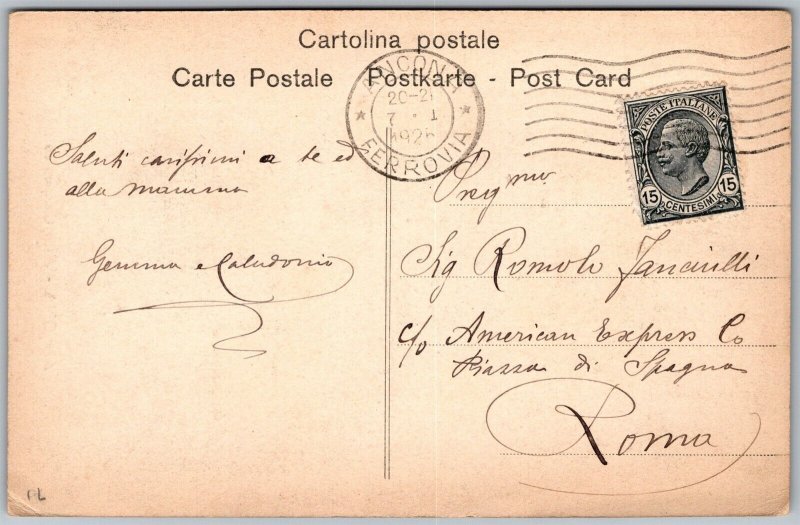 Cartolina postale
Carte Postale Postkarte - Post Card
ANCONA
20-21
7 · I
1926
FERROVIA
POSTE ITALIANE
15 15
CENTESIMI
Saluti carissimi a te ed
alla mamma
Gemma e Calidonio
Preg mo
Sig Romolo
c/o American Express Co
Piazza di Spagna
Roma
1-L